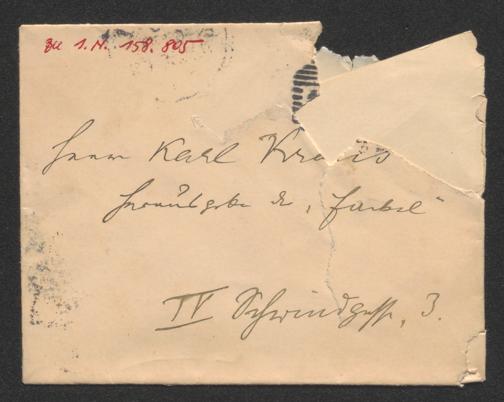 zu I. N. 158.805
Herrn Karl Kraus
Herausgeber der „Fackel“
IV Schwindgasse, 3.